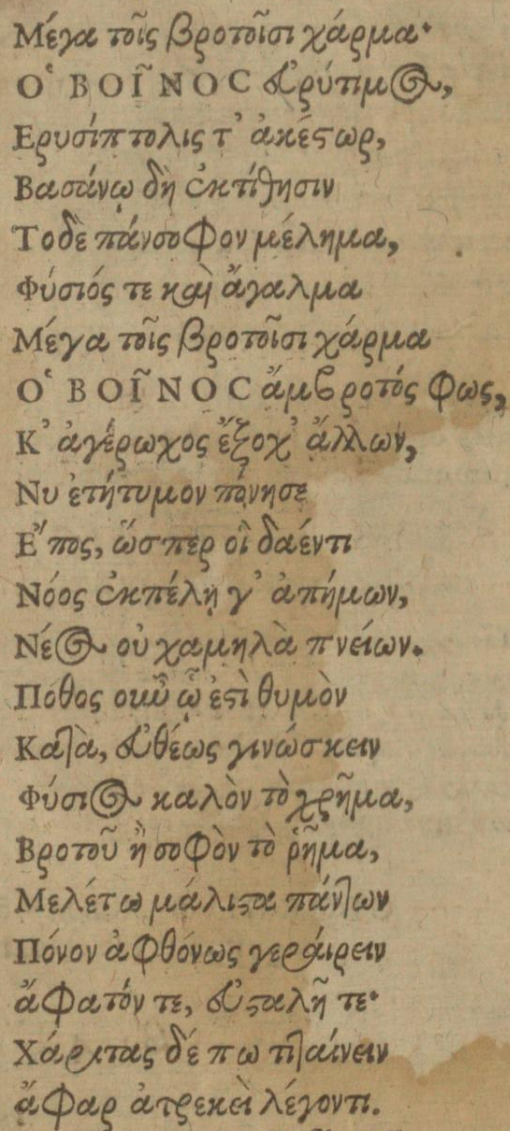 Μέγα τοῖς βροτοῖσι χάρμα·
Ὁ ΒΟῖΝΟϹ ἐρύτιμος,
Ερυσίπτολις τ' ἀκέστωρ,
Βασάνῳ δὴ ἐκτίθησιν
Τοδὲ πάνσοφον μέλημα,
Φύσιός τε καὶ ἄγαλμα
Μέγα τοῖς βροτοῖσι χάρμα
Ὁ ΒΟῖΝΟϹ ἄμβροτός φως,
Κ' ἀγέρωχος ἔξοχ' ἄλλων,
Νυ ἐτήτυμον πόνησε
Ἔπος, ὥσπερ οἳ δαέντι
Νόος ἐκπέλῃ γ' ἀπήμων,
Νέος οὐ χαμηλὰ πνείων.
Πόθος οιωῦ ᾧ ἐστὶ θυμὸν
Κατὰ, εὐθέως γινώσκειν
Φύσιος καλὸν τὸ χρῆμα,
Βροτοῦ ἢ σοφὸν τὸ ῥῆμα,
Μελέτω μάλιστα πάντων
Πόνον ἀφθόνως γεραίρειν
ἄφατόν τε, εὐσταλῆ τε·
Χάριτας δέ πω τιταίνειν
ἄφαρ ἀτρεκεῖ λέγοντι.